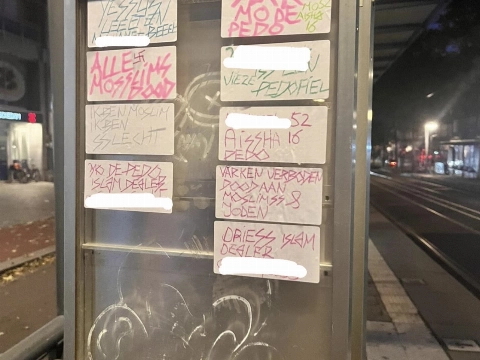 ALLE
MOSSLIMS
DOOD
IK BEN MOSLIM
IK BEN
SSLECHT
MO DE PEDO
ISLAM DEALER
MO DE
PEDO
16
VIEZE
PEDOFIEL
52
AISSHA 16
PEDO
VARKEN VERBODEN
DOOD AAN
MOSLIMSS 8
JODEN
DRIESS ISLAM
DEALER